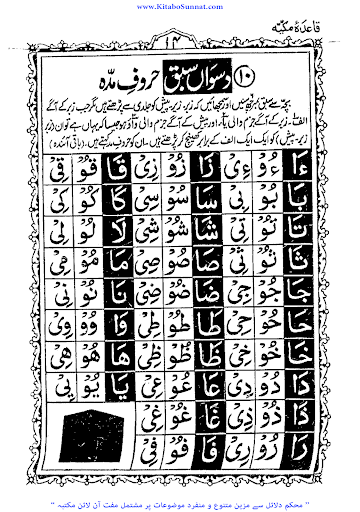 www.KitaboSunnat.com
قاعدہ مکتبہ
۱۴
۱۰ دسواں سبق حروف مدہ
بچہ سے سبق ہر نہج میں اور سمجھائیں کہ زبر، زیر، پیش کو جلدی سے پڑھتے ہیں مگر جب زبر کے آگے
الف، زیر کے آگے جزم والی یا، اور پیش کے آگے جزم والی واؤ ہو جیسا کہ یہاں ہے تو ان (زبر
زیر، پیش) کو ایک ایک الف کے برابر کھینچ کر پڑھتے ہیں۔ ان کو حروف مدہ کہتے ہیں۔ (باقی آئندہ)
ءَا ءُوْ ءِیْ زَا زُوْ زِیْ قَا قُوْ قِیْ
بَا بُوْ بِیْ سَا سُوْ سِیْ كَا كُوْ كِیْ
تَا تُوْ تِیْ شَا شُوْ شِیْ لَا لُوْ لِیْ
ثَا ثُوْ ثِیْ صَا صُوْ صِیْ مَا مُوْ مِیْ
جَا جُوْ جِیْ ضَا ضُوْ ضِیْ نَا نُوْ نِیْ
حَا حُوْ حِیْ طَا طُوْ طِیْ وَا وُوْ وِیْ
خَا خُوْ خِیْ ظَا ظُوْ ظِیْ هَا هُوْ هِیْ
دَا دُوْ دِیْ عَا عُوْ عِیْ یَا یُوْ یِیْ
ذَا ذُوْ ذِیْ غَا غُوْ غِیْ
رَا رُوْ رِیْ فَا فُوْ فِیْ
" محکم دلائل سے مزین متنوع و منفرد موضوعات پر مشتمل مفت آن لائن مکتبہ "